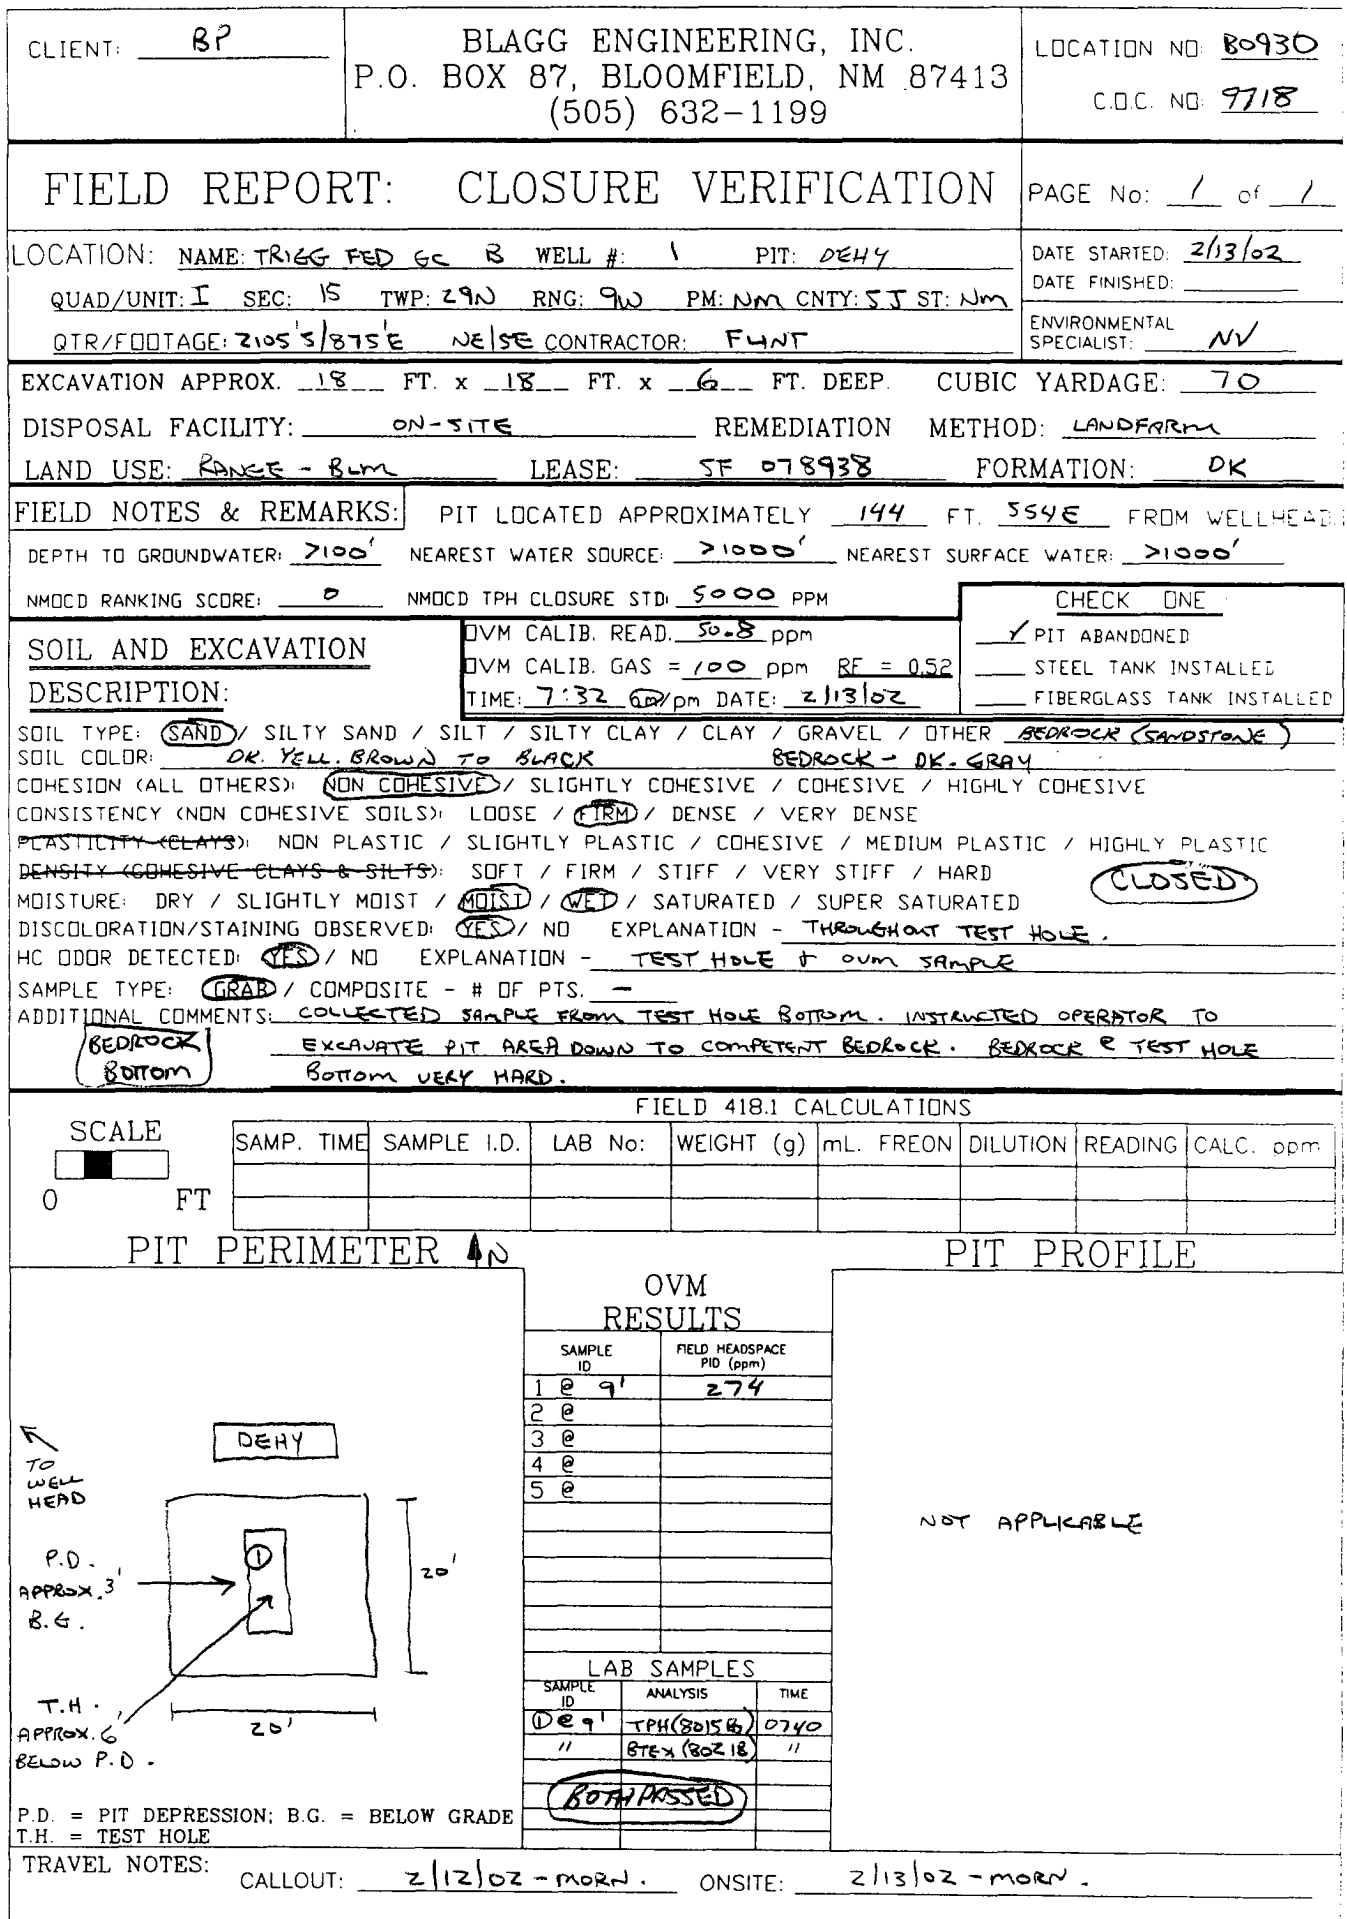 CLIENT: BP
BLAGG ENGINEERING, INC.
P.O. BOX 87, BLOOMFIELD, NM 87413
(505) 632-1199
LOCATION NO: B0930
C.O.C. NO: 9718
FIELD REPORT: CLOSURE VERIFICATION
PAGE No: 1 of 1
LOCATION: NAME: TRIGG FED GC B WELL #: 1 PIT: DEHY
QUAD/UNIT: I SEC: 15 TWP: 29N RNG: 9W PM: NM CNTY: SJ ST: NM
QTR/FOOTAGE: 2105'S/875'E NE/SE CONTRACTOR: FLINT
DATE STARTED: 2/13/02
DATE FINISHED:
ENVIRONMENTAL
SPECIALIST: NV
EXCAVATION APPROX. 18 FT. x 18 FT. x 6 FT. DEEP. CUBIC YARDAGE: 70
DISPOSAL FACILITY: ON-SITE REMEDIATION METHOD: LANDFARM
LAND USE: RANGE - BLM LEASE: SF 078938 FORMATION: DK
FIELD NOTES & REMARKS: PIT LOCATED APPROXIMATELY 144 FT. S54E FROM WELLHEAD.
DEPTH TO GROUNDWATER: >100' NEAREST WATER SOURCE: >1000' NEAREST SURFACE WATER: >1000'
NMOCD RANKING SCORE: 0 NMOCD TPH CLOSURE STD: 5000 PPM
CHECK ONE
✓ PIT ABANDONED
STEEL TANK INSTALLED
FIBERGLASS TANK INSTALLED
SOIL AND EXCAVATION
DESCRIPTION:
OVM CALIB. READ. 50.8 ppm
OVM CALIB. GAS = 100 ppm RF = 0.52
TIME: 7:32 am/pm DATE: 2/13/02
SOIL TYPE: SAND / SILTY SAND / SILT / SILTY CLAY / CLAY / GRAVEL / OTHER BEDROCK (SANDSTONE)
SOIL COLOR: DK. YELL. BROWN TO BLACK BEDROCK - DK. GRAY
COHESION (ALL OTHERS): NON COHESIVE / SLIGHTLY COHESIVE / COHESIVE / HIGHLY COHESIVE
CONSISTENCY (NON COHESIVE SOILS): LOOSE / FIRM / DENSE / VERY DENSE
PLASTICITY (CLAYS): NON PLASTIC / SLIGHTLY PLASTIC / COHESIVE / MEDIUM PLASTIC / HIGHLY PLASTIC
DENSITY (COHESIVE CLAYS & SILTS): SOFT / FIRM / STIFF / VERY STIFF / HARD
CLOSED
MOISTURE: DRY / SLIGHTLY MOIST / MOIST / WET / SATURATED / SUPER SATURATED
DISCOLORATION/STAINING OBSERVED: YES / NO EXPLANATION - THROUGHOUT TEST HOLE.
HC ODOR DETECTED: YES / NO EXPLANATION - TEST HOLE & OVM SAMPLE
SAMPLE TYPE: GRAB / COMPOSITE - # OF PTS. -
ADDITIONAL COMMENTS: COLLECTED SAMPLE FROM TEST HOLE BOTTOM. INSTRUCTED OPERATOR TO
EXCAVATE PIT AREA DOWN TO COMPETENT BEDROCK. BEDROCK @ TEST HOLE
BOTTOM VERY HARD.
BEDROCK
BOTTOM
FIELD 418.1 CALCULATIONS
SCALE
0 FT
SAMP. TIME SAMPLE I.D. LAB No: WEIGHT (g) mL. FREON DILUTION READING CALC. ppm
PIT PERIMETER N
PIT PROFILE
OVM
RESULTS
SAMPLE ID FIELD HEADSPACE PID (ppm)
1 @ 9' 274
2 @
3 @
4 @
5 @
DEHY
TO
WELL
HEAD
1
P.D.
APPROX. 3'
B.G.
20'
T.H.
APPROX. 6'
BELOW P.D.
20'
NOT APPLICABLE
LAB SAMPLES
SAMPLE ID ANALYSIS TIME
① @ 9' TPH (8015B) 0740
" BTEX (8021B) "
BOTH PASSED
P.D. = PIT DEPRESSION; B.G. = BELOW GRADE
T.H. = TEST HOLE
TRAVEL NOTES: CALLOUT: 2/12/02 - MORN. ONSITE: 2/13/02 - MORN.